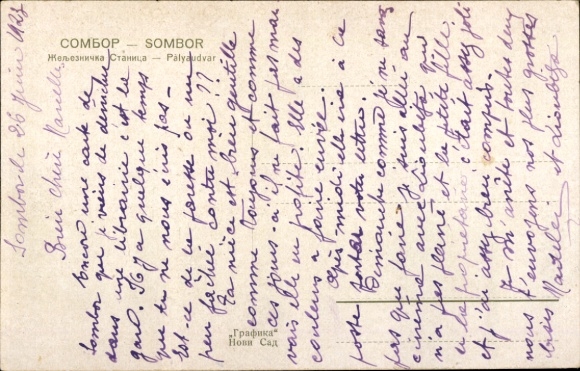 СОМБОР — SOMBOR
Жељезничка Станица — Pályaudvar
Sombor le 26 juin 1927
Bien chère Manelle,
Encore une carte de
Sombor que je viens de dénicher
dans une librairie c'est la
gare. Il y a quelque temps
que tu ne nous écris pas —
Est-ce de la paresse ou un
peu fâchée contre moi ??
Ta nièce est bien gentille
comme toujours et comme
ces jours-ci il ne fait pas mau
vais elle en profite. Elle a des
couleurs à faire envie.
après midi elle ira à la
poste porter votre lettre.
Dimanche comme je ne savais
pas que faire je suis allée au
cinéma avec
n'a pas flané et la petite fille
de la propriétaire c'était assez joli
et j'ai assez bien compris.
Je m'arrête et toutes deux
nous t'envoyons nos plus grosses
bises
„Графика"
Нови Сад